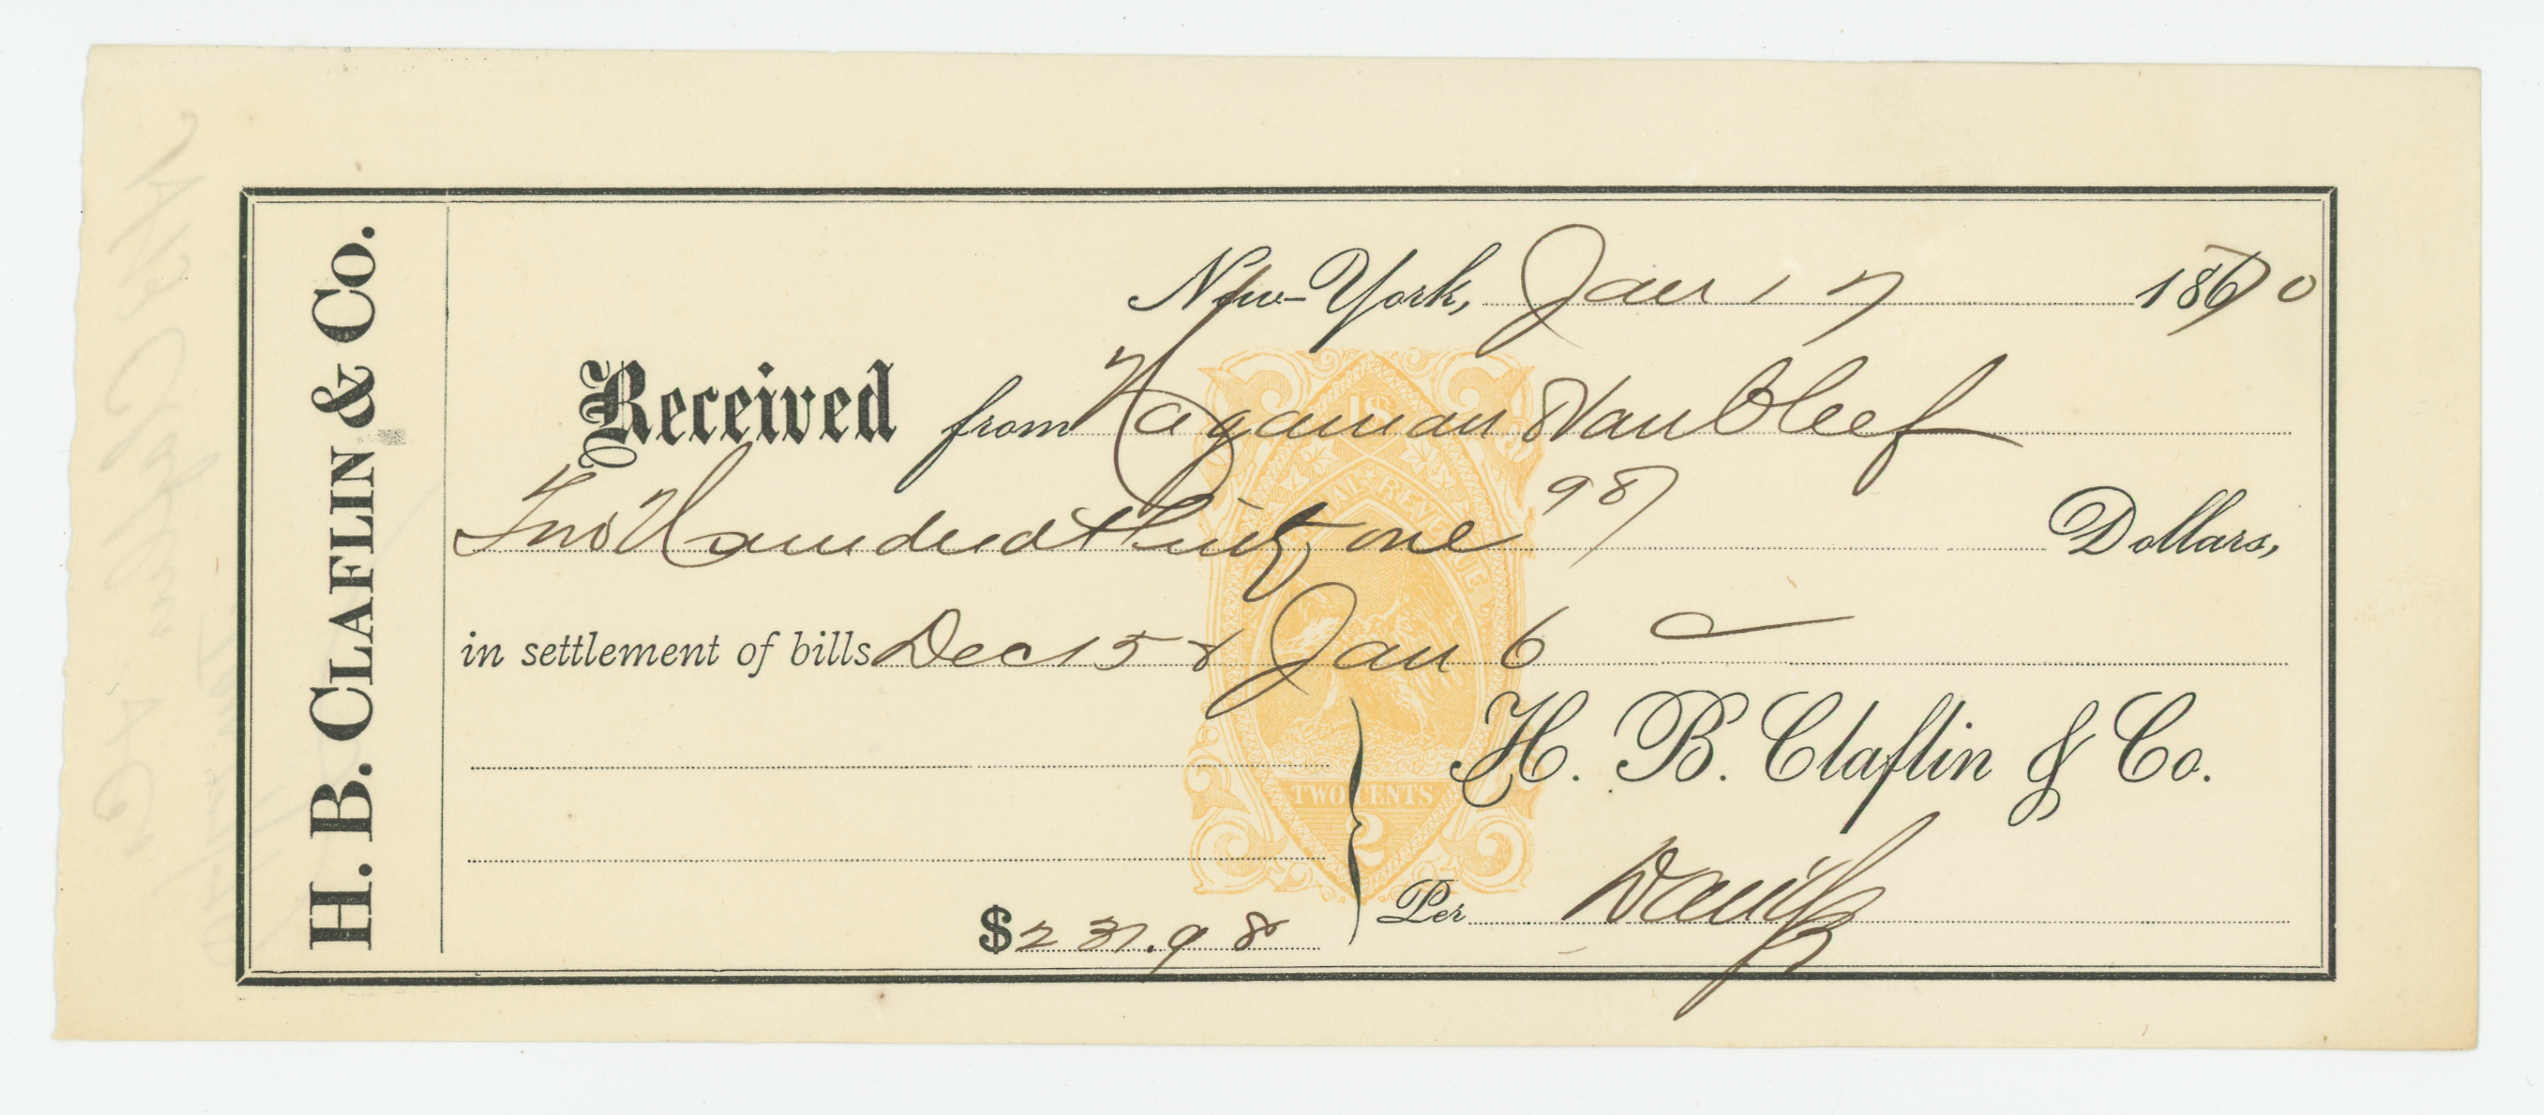 H. B. CLAFLIN & Co.
New-York, Jan 17 1870
Received from Hagaman & Van Cleef
Two Hundred thirty one 98/ Dollars,
in settlement of bills Dec 15 & Jan 6
H. B. Claflin & Co.
$231.98
Per
U.S.
INTERNAL REVENUE
TWO CENTS
2